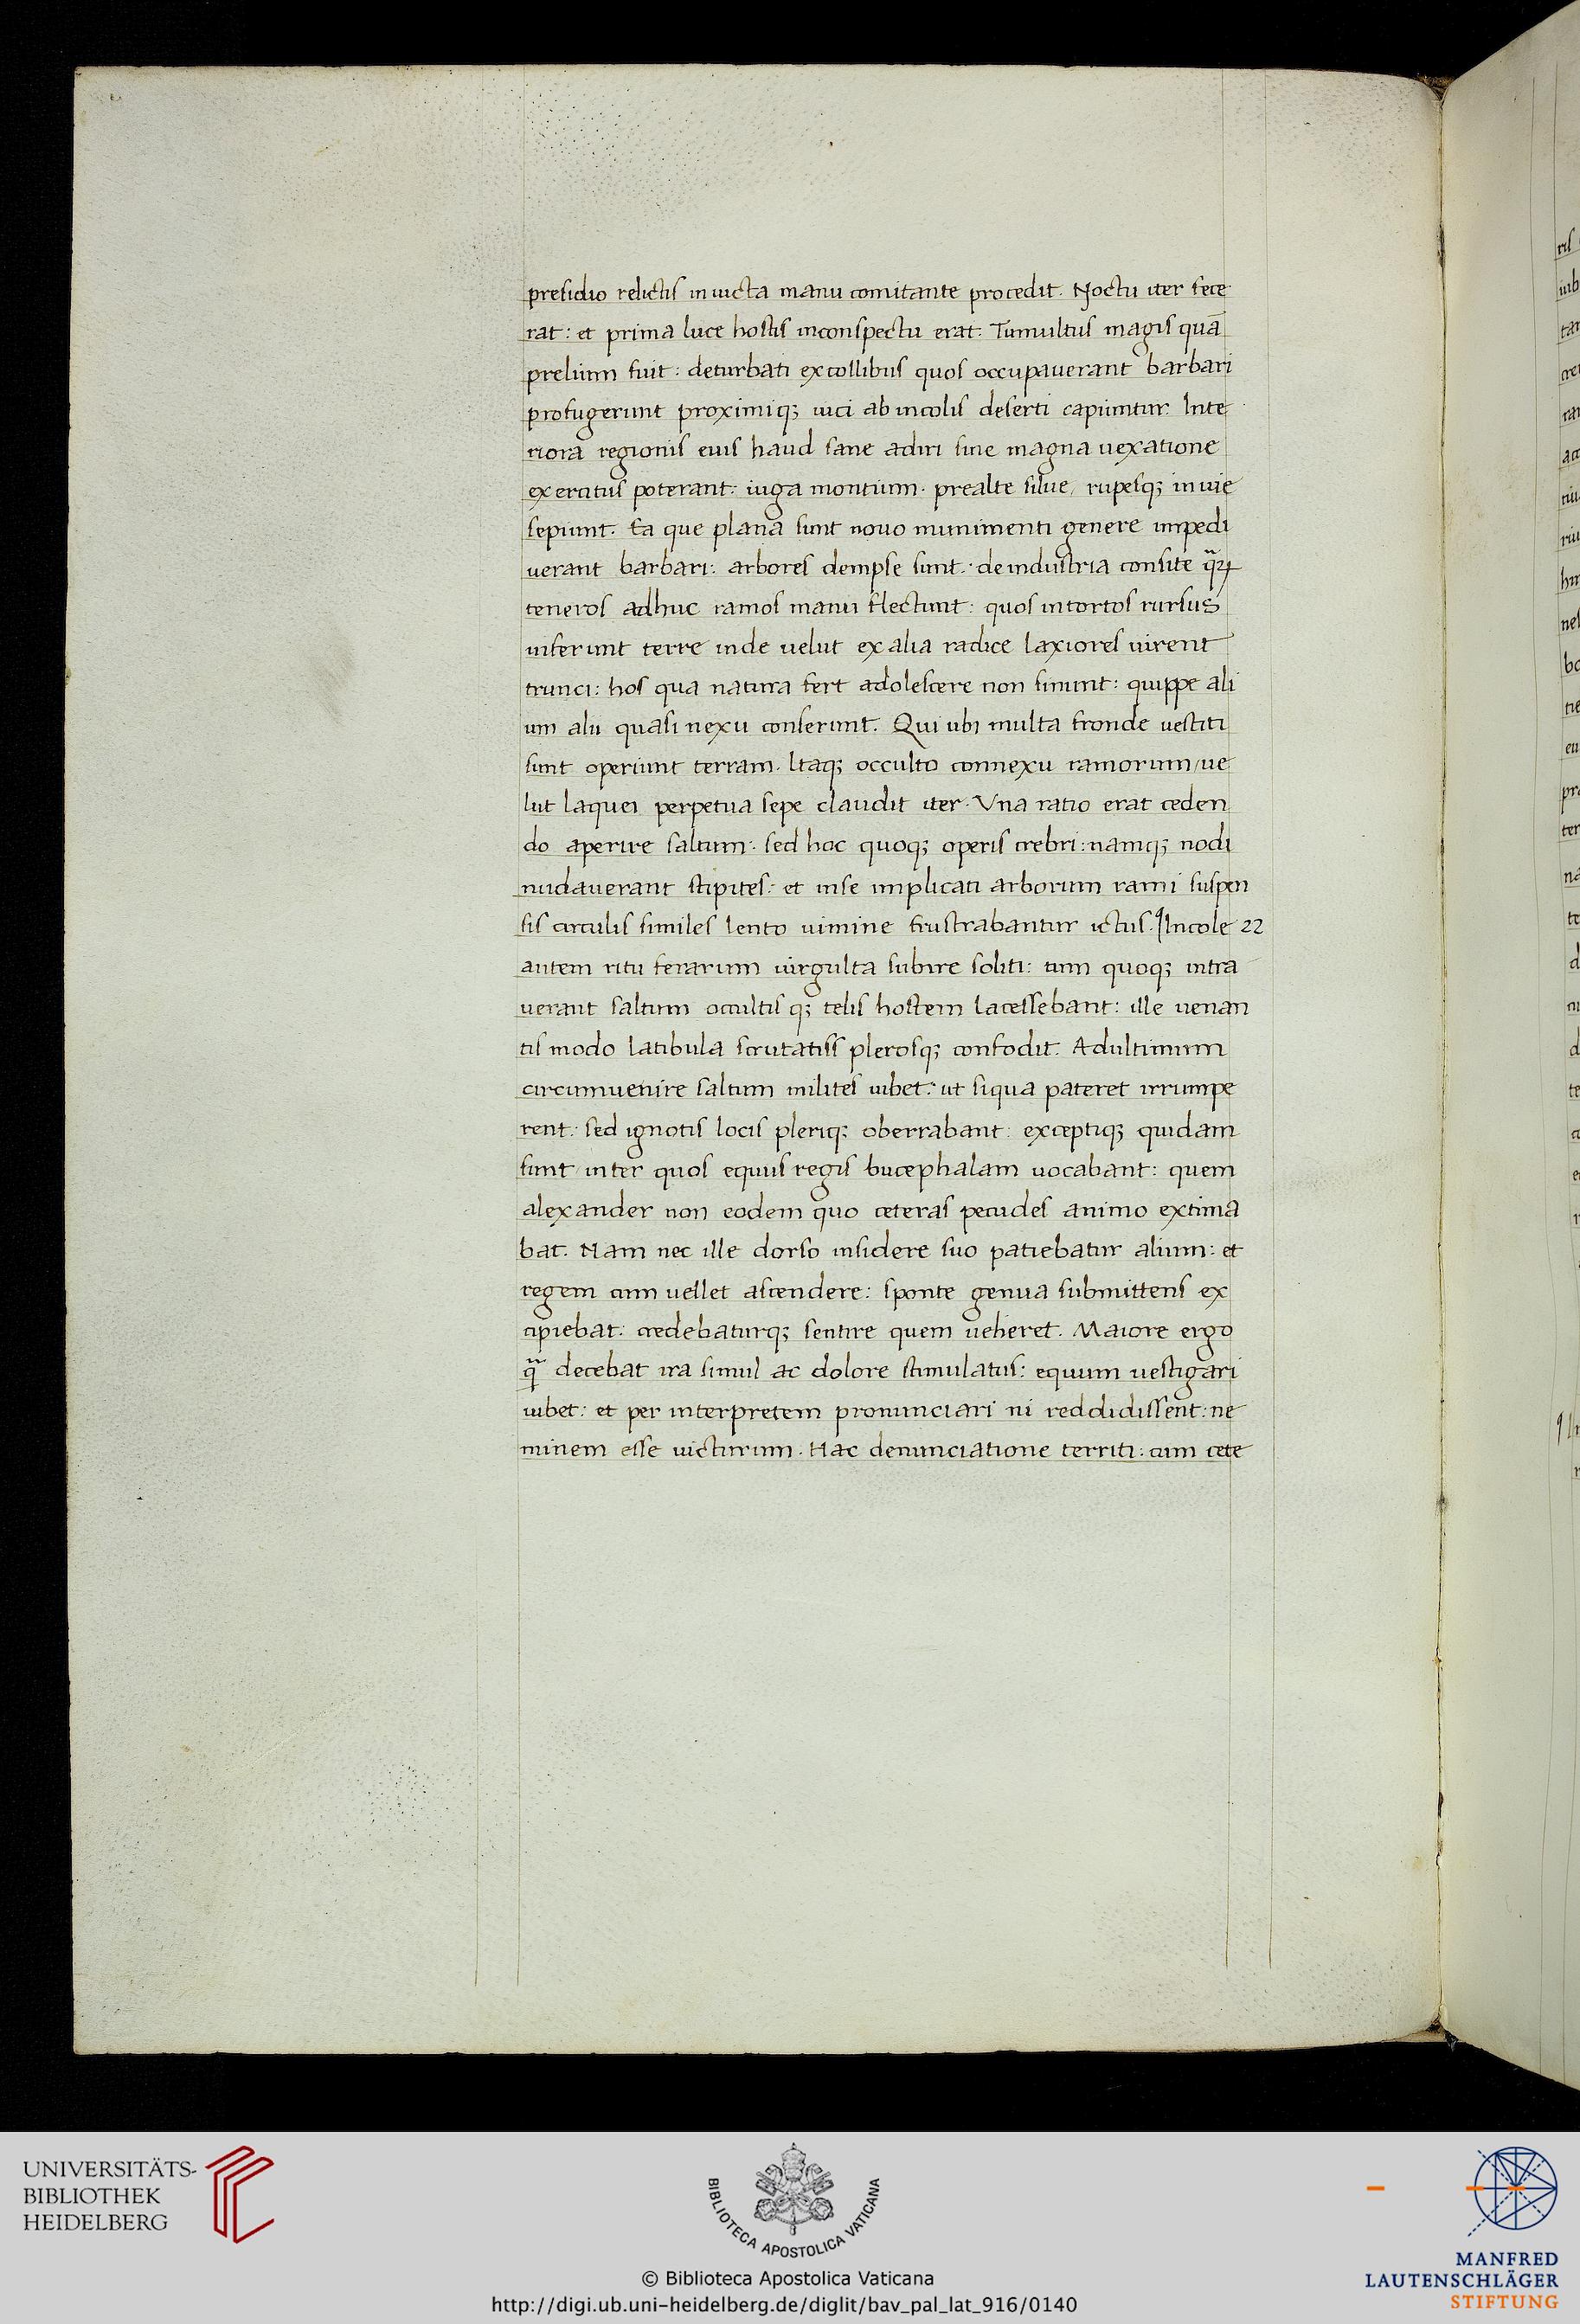 presidio relictis inuicta manu comitante procedit. Noctu iter fece
rat: et prima luce hostis inconspectu erat. Tumultus magis quā
prelium fuit: deturbati excollibus quos occupauerant barbari
profugerunt proximiq; uici ab incolis deserti capiuntur. Inte
riora regionis eius haud sane adiri sine magna uexatione
exercitus poterant: iuga montium. prealte silue, rupesq; inuie
sepiunt. Ea que plana sunt nouo munimenti genere impedi
uerant barbari: arbores dempse sunt. de industria consite qꝝ
teneros adhuc ramos manu flectunt: quos intortos rursus
inferunt terre inde uelut ex alia radice laxiores uirent
trunci: hos qua natura fert adolescere non sinunt: quippe ali
um alii quasi nexu conserunt. Qui ubi multa fronde uestiti
sunt operiunt terram. Itaq; occulto connexu ramorum/ue
lut laquei perpetua sepe claudit iter. Vna ratio erat ceden
do aperire saltum. sed hoc quoq; operis crebri: namq; nodi
nudauerant stipites: et inse implicati arborum rami suspen
sis circulis similes lento uimine frustrabantur ictus. ¶Incole 22
autem ritu ferarum uirgulta subire soliti: tum quoq; intra
uerant saltum occultis q; telis hostem lacessebant: ille uenan
tis modo latibula scrutatiss plerosq; confodit. Adultimum
circumuenire saltum milites iubet: ut siqua pateret irrumpe
rent: sed ignotis locis pleriq; oberrabant: exceptiq; quidam
sunt/inter quos equus regis bucephalam uocabant: quem
alexander non eodem quo ceteras pecudes animo extima
bat. Nam nec ille dorso insidere suo patiebatur alium: et
regem cum uellet ascendere: sponte genua submittens ex
cipiebat: credebaturq; sentire quem ueheret. Maiore ergo
q̃ decebat ira simul ac dolore stimulatus: equum uestigari
iubet: et per interpretem pronunciari ni reddidissent: ne
minem esse uicturum. Hac denunciatione territi: cum cete
UNIVERSITÄTS-
BIBLIOTHEK
HEIDELBERG
BIBLIOTECA APOSTOLICA VATICANA
MANFRED
LAUTENSCHLÄGER
STIFTUNG
© Biblioteca Apostolica Vaticana
http://digi.ub.uni-heidelberg.de/diglit/bav_pal_lat_916/0140